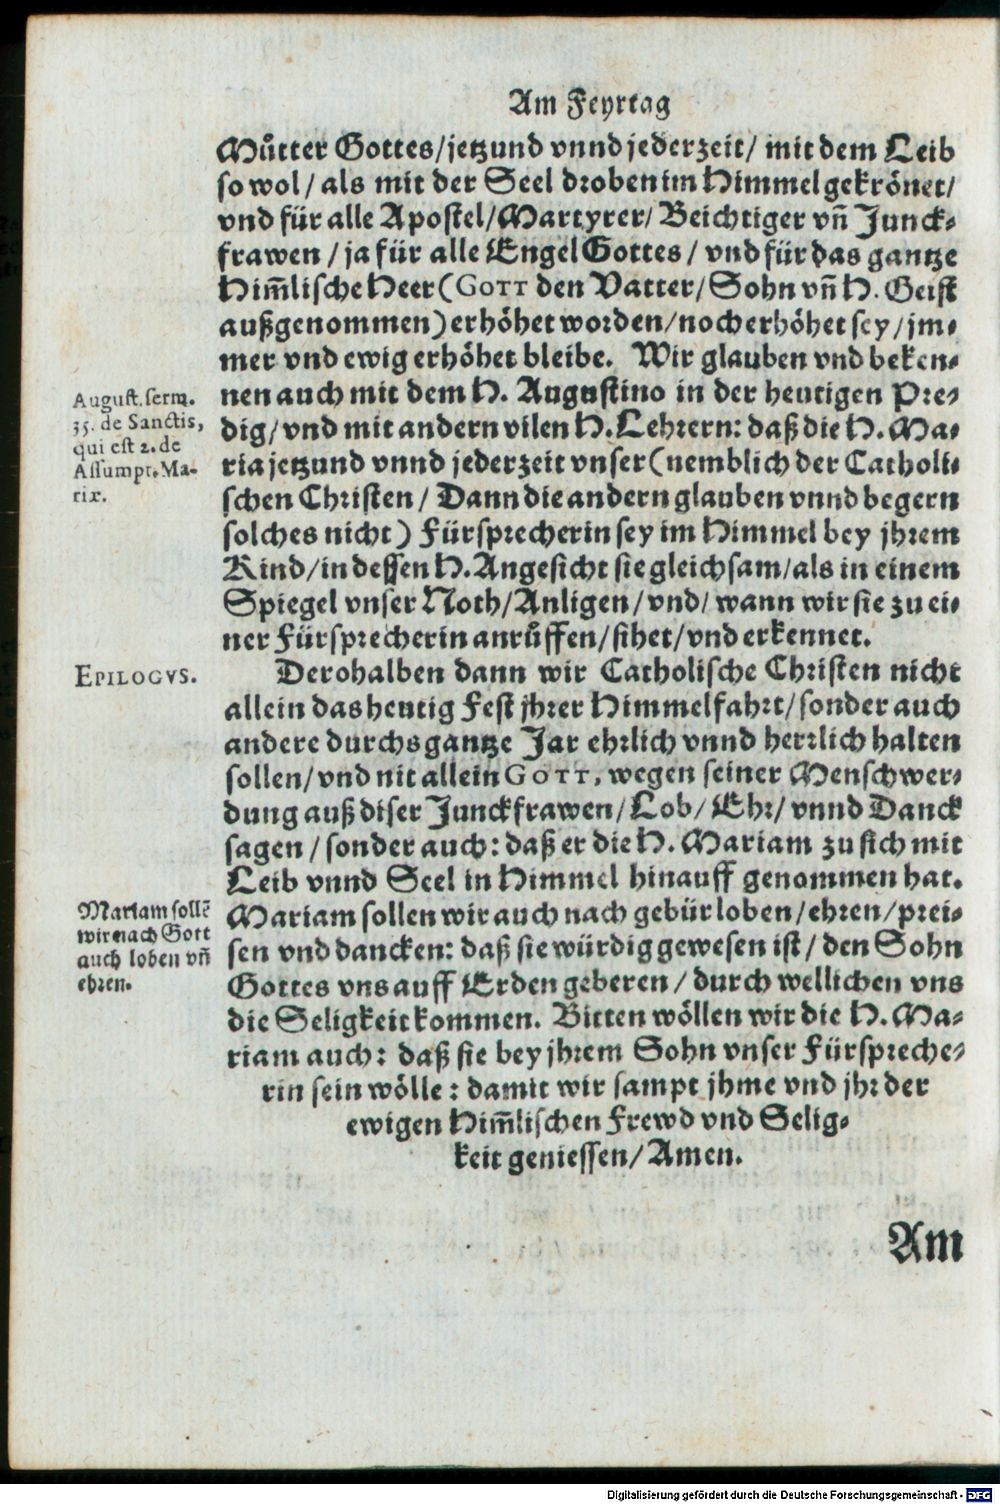 Am Feyrtag
Můtter Gottes/jetzund vnnd jederzeit/ mit dem Leib
so wol/ als mit der Seel droben im Himmel gekrönet/
vnd für alle Apostel/Martyrer/ Beichtiger vñ Junck-
frawen / ja für alle Engel Gottes / vnd für das gantze
Him̃lische Heer (GOTT den Vatter/ Sohn vñ H. Geist
außgenommen) erhöhet worden/noch erhöhet sey/jm-
mer vnd ewig erhöhet bleibe. Wir glauben vnd beken-
nen auch mit dem H. Augustino in der heutigen Pre-
dig/ vnd mit andern vilen H. Lehrern: daß die H. Ma-
ria jetzund vnnd jederzeit vnser (nemblich der Catholi-
schen Christen / Dann die andern glauben vnnd begern
solches nicht) Fürsprecherin sey im Himmel bey jhrem
Kind/in dessen H. Angesicht sie gleichsam/als in einem
Spiegel vnser Noth/Anligen/vnd/ wann wir sie zu ei-
ner Fürsprecherin anrůffen/sihet/vnd erkennet.
August. serm.
35. de Sanctis,
qui est 2. de
Assumpt. Ma-
rix.
EPILOGVS.
Derohalben dann wir Catholische Christen nicht
allein das heutig Fest jhrer Himmelfahrt/sonder auch
andere durchs gantze Jar ehrlich vnnd herrlich halten
sollen/vnd nit allein GOTT, wegen seiner Menschwer-
dung auß diser Junckfrawen/Lob/ Ehr/ vnnd Danck
sagen / sonder auch: daß er die H. Mariam zu sich mit
Leib vnnd Seel in Himmel hinauff genommen hat.
Mariam sollen wir auch nach gebür loben/ehren/prei-
sen vnd dancken: daß sie würdig gewesen ist / den Sohn
Gottes vns auff Erden geberen / durch wellichen vns
die Seligkeit kommen. Bitten wöllen wir die H. Ma-
riam auch: daß sie bey jhrem Sohn vnser Fürspreche-
rin sein wölle: damit wir sampt jhme vnd jhr der
ewigen Him̃lischen Frewd vnd Selig-
keit geniessen/Amen.
Mariam sollẽ
wir nach Gott
auch loben vñ
ehren.
Am
Digitalisierung gefördert durch die Deutsche Forschungsgemeinschaft - DFG